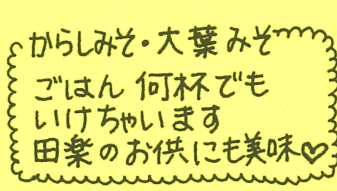 からしみそ・大葉みそ
ごはん何杯でも
いけちゃいます
田楽のお供にも美味♡